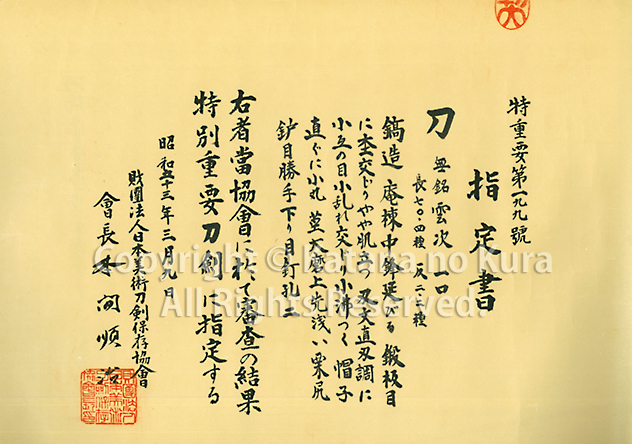 特重要第一九九號
指定書
刀 無銘 雲次 一口
長七〇・四糎 反二・二糎
鎬造 庵棟 中鋒延びる 鍛板目
に杢交じりやや肌立つ 刃文直刃調に
小互の目小乱れ交じり小沸つく 帽子
直ぐに小丸 茎大磨上 先浅い栗尻
鈩目勝手下り 目釘孔二
右者當協會に於て審査の結果
特別重要刀剣に指定する
昭和五十三年三月九日
財團法人日本美術刀剣保存協會
會長 本間順治
Copyright © Katana no Kura
All Rights Reserved.